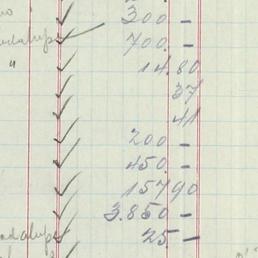 300 -
700 -
" 14.80
37
41
200 -
450 -
157 90
3.850 -
25 -